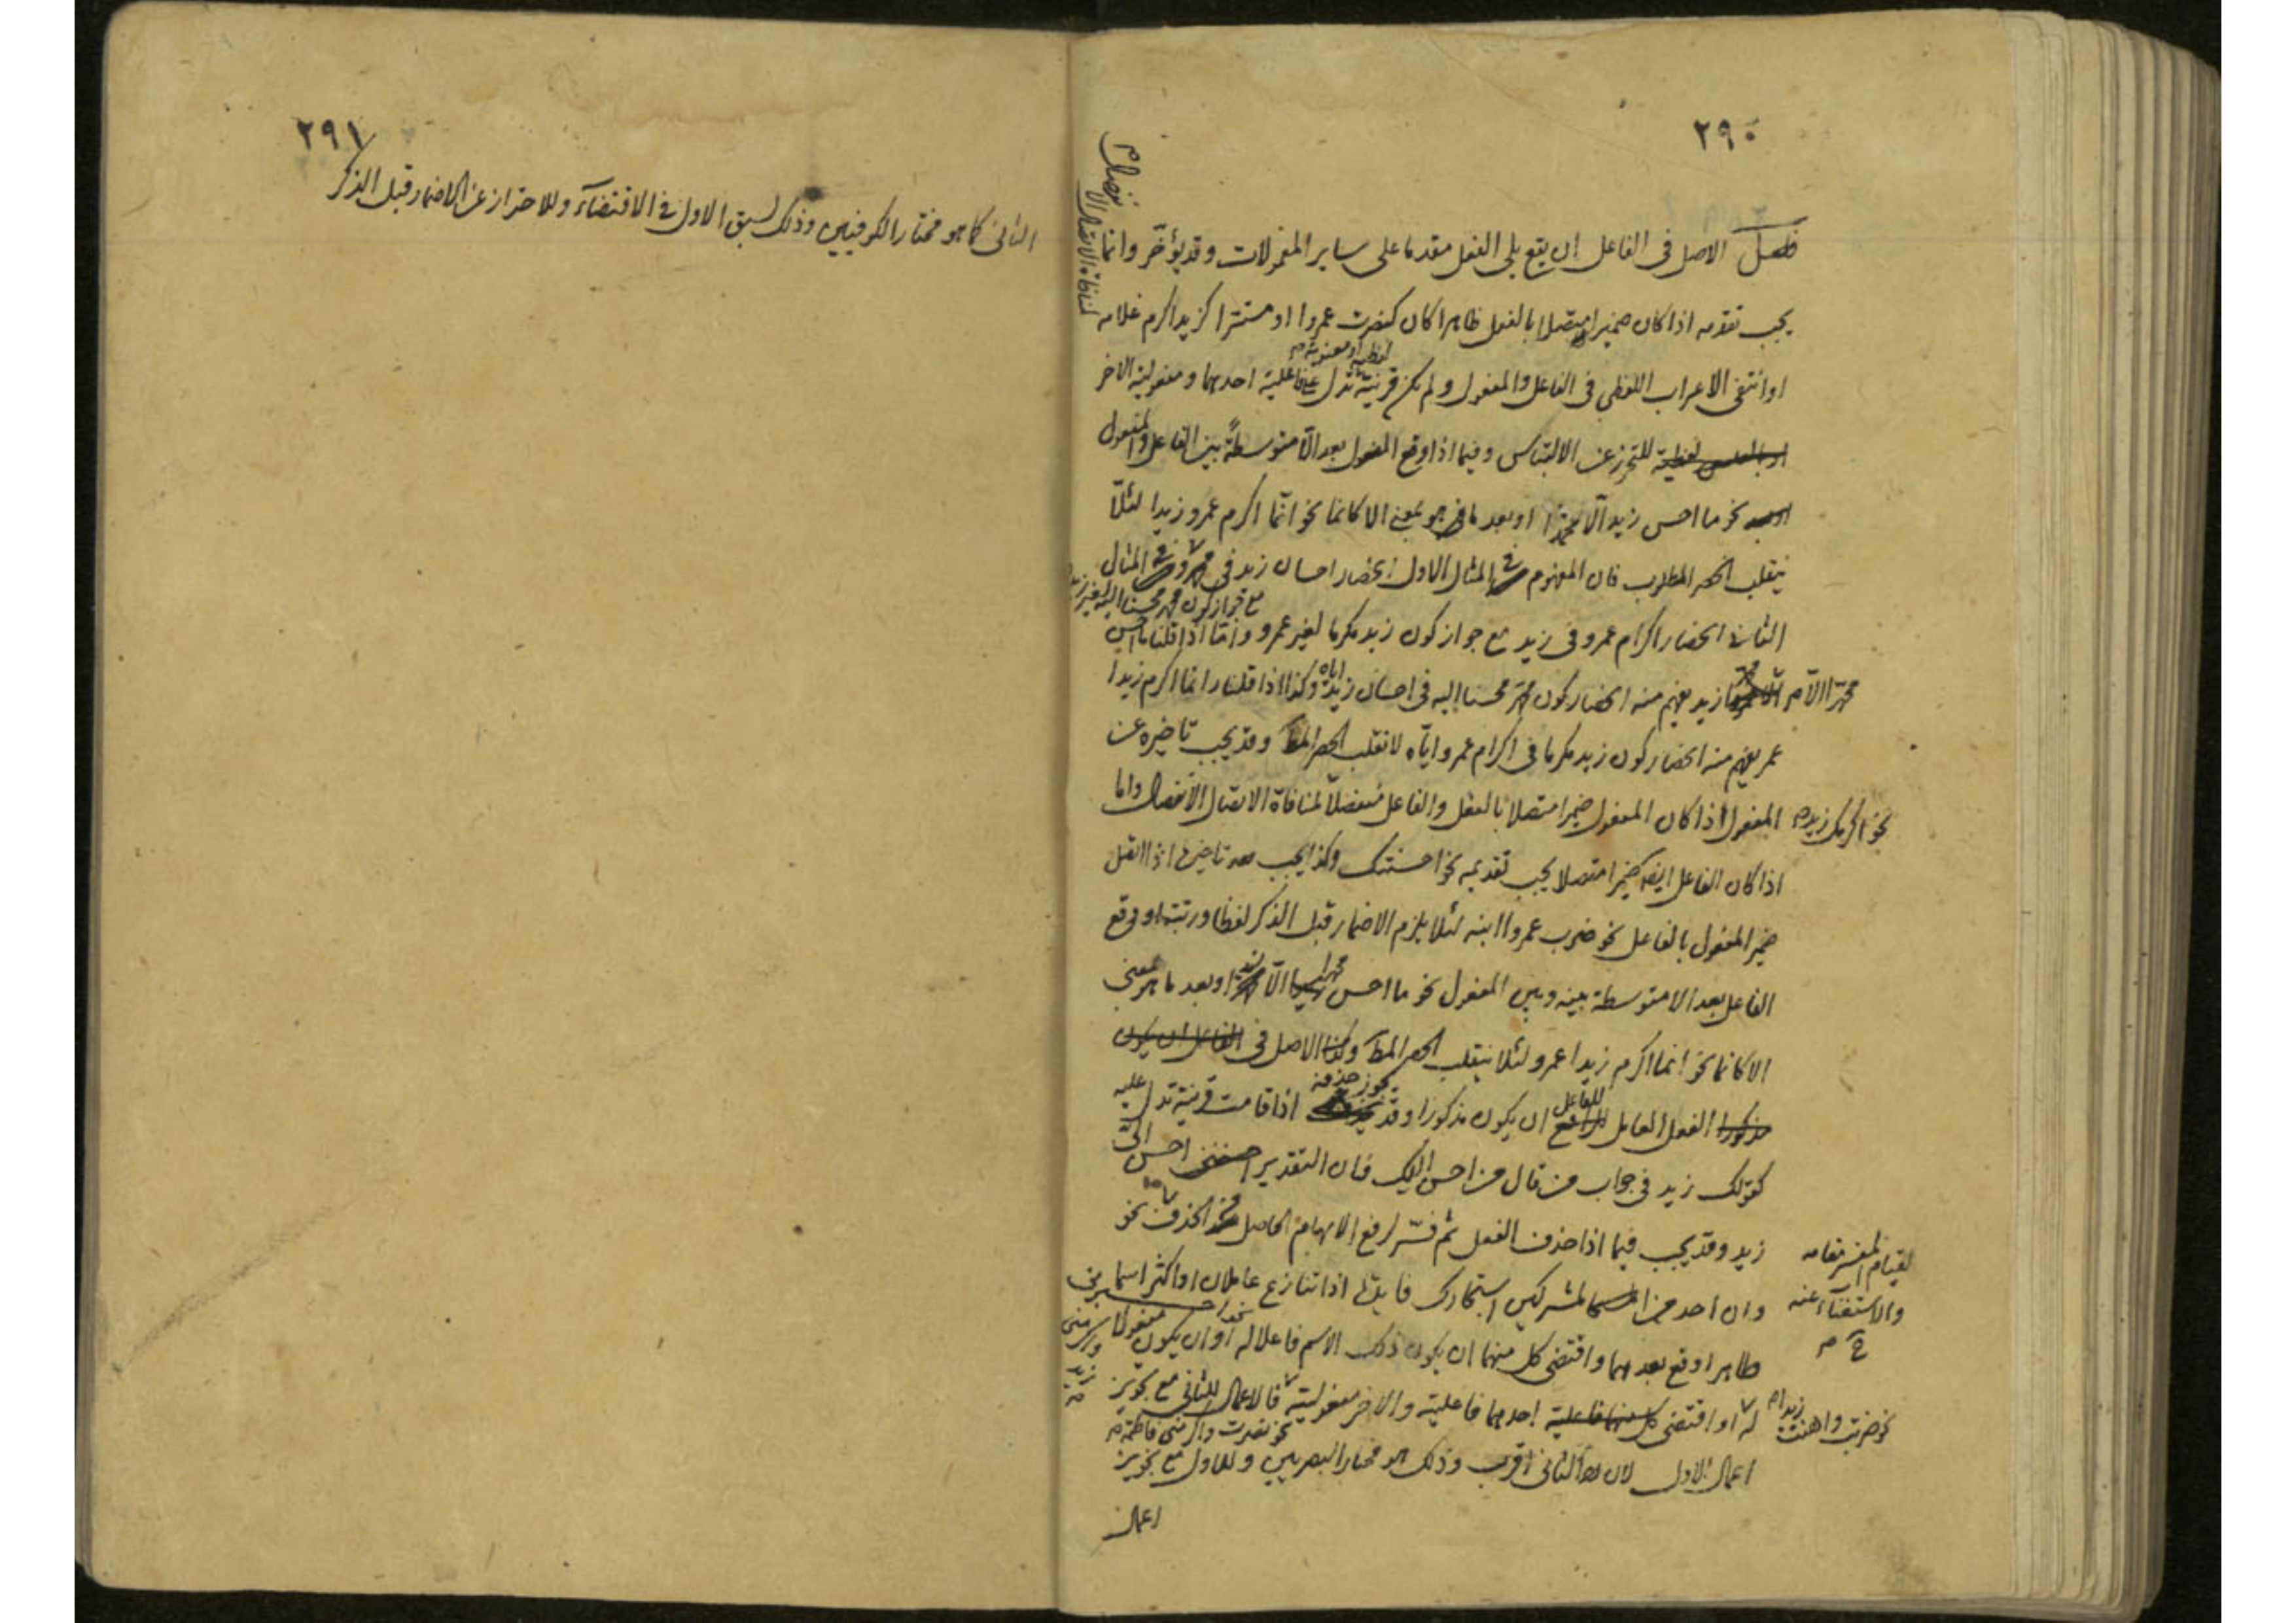 ٢٩٠
فصل الاصل فى الفاعل ان يقع يلى الفعل مقدما على ساير المفعولات وقد يؤخر وانما
يجب تقدمه اذا كان ضميرا متصلا بالفعل ظاهرا كان كنصرت عمروا او مستترا كزيد اكرم غلامه
لمنافاة الاتصال الانفصال م
او انتفى الاعراب اللفظى فى الفاعل والمفعول ولم يكن قرينة تدل على فاعلية احدهما ومفعولية الاخر
لفظية او معنوية م
او بالعكس لفظية للتحرز عن الالتباس وفيما اذا وقع المفعول بعد الّا متوسطةً بين الفاعل والمفعول
نحو ما احسن زيد الّا او بعد ما هو بمعنى الا كانما نحو انّما اكرم عمرو زيدا لئلّا
ينقلب الحصر المطلوب فان المفهوم فى المثال الاول انحصار احسان زيد فى وفى المثال
مع جواز كون محسنا اليه لغير زيد م
الثانى انحصار اكرام عمرو فى زيد مع جواز كون زيد مكرما لغير عمرو وامّا اذا قلنا ما احسن
الّا زيد يفهم منه انحصار كون محسنا اليه فى احسان زيد اياه وكذا اذا قلنا انما اكرم زيدا
عمر يفهم منه انحصار كون زيد مكرما فى اكرام عمرو ايّاه لانقلب الحصر المط وقد يجب تاخيره عن
المفعول اذا كان المفعول ضميرا متصلا بالفعل والفاعل منفصلا لمنافاة الاتصال الانفصال واما
نحو اكرمك زيد م
اذا كان الفاعل ايضا ضميرا متصلا يجب تقديمه نحو احسنتك وكذا يجب تاخيره اذا اتصل
ضمير المفعول بالفاعل نحو ضرب عمروا ابنه لئلا يلزم الاضمار قبل الذكر لفظا ورتبة او وقع
الفاعل بعد الا متوسطة بينه وبين المفعول نحو ما احسن الّا زيد او بعد ما هو بمعنى
الا كانما نحو انما اكرم زيدا عمرو لئلا ينقلب الحصر المط وكذا الاصل فى الفاعل ان يكون
مذكورا الفعل العامل الرافع للفاعل ان يكون مذكورا وقد يجوز حذفه اذا قامت قرينة تدل عليه
كقولك زيد فى جواب من قال من احسن اليك فان التقدير احسن الىّ
زيد وقد يجب فيما اذا حذف الفعل ثم فسّر لرفع الابهام الحاصل من الحذف نحو
لقيام المفسر مقامه
والاستغناء عنه
ح م
وان احد من المشركين استجارك فايدة اذا تنازع عاملان او اكثر اسما
ظاهرا وقع بعدهما واقتضى كل منهما ان يكون ذلك الاسم فاعلا له او ان يكون مفعولا
له او اقتضى كل منهما فاعلية احدهما فاعليته والاخر مفعوليته فالاعمال للثانى مع تجويز
نحو ضربت واهنت زيدا م
نحو نصرت واكرمنى فاطمة م
اعمال الاول لان الثانى اقرب وذلك هو مختار البصريين وللاول مع تجويز
اعمال
٢٩١
الثانى كما هو مختار الكوفيين وذلك لسبق الاول فى الاقتضاء وللاحتراز عن الاضمار قبل الذكر